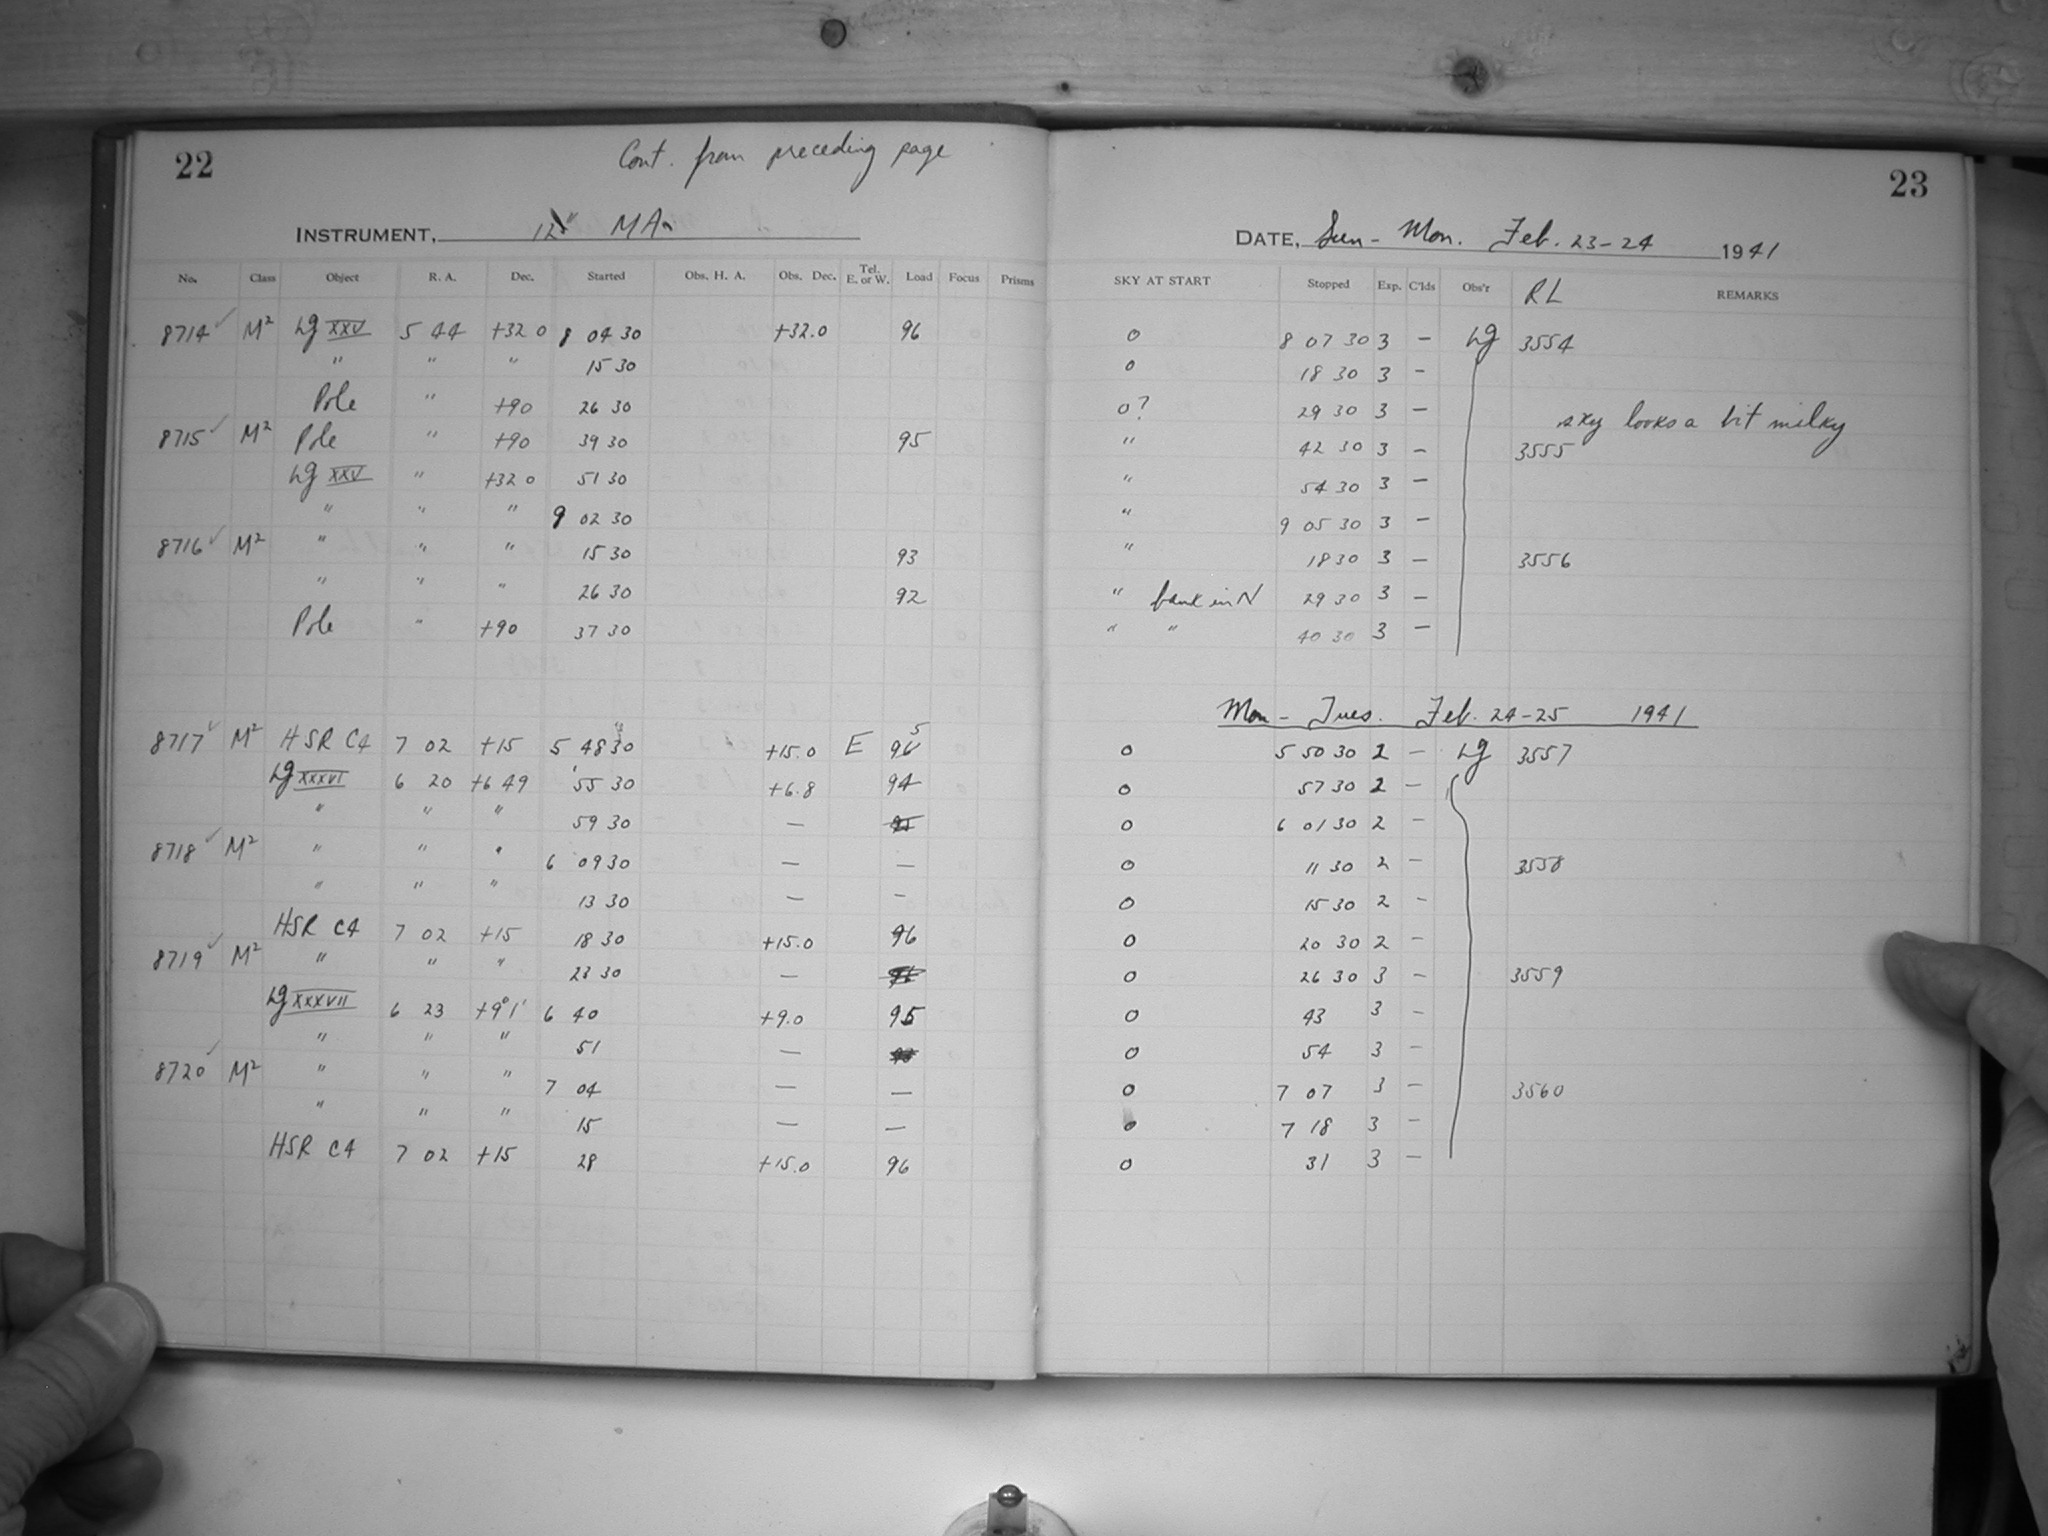 22
Cont. from preceding page
23
INSTRUMENT, 12" MA
DATE, Sun - Mon. Feb. 23-24 1941
No. Class Object R. A. Dec. Started Obs. H. A. Obs. Dec. Tel. E. or W. Load Focus Prisms SKY AT START Stopped Exp. C'lds Obs'r RL REMARKS
8714 ✓ M² Lg XXV 5 44 +32 0 8 04 30 +32.0 96 0 8 07 30 3 — Lg 3554
" " " 15 30 0 18 30 3 —
Pole " +90 26 30 0? 29 30 3 — sky looks a bit milky
8715 ✓ M² Pole " +90 39 30 95 " 42 30 3 — 3555
Lg XXV " +32 0 51 30 " 54 30 3 —
" " " 9 02 30 " 9 05 30 3 —
8716 ✓ M² " " " 15 30 93 " 18 30 3 — 3556
" " " 26 30 92 " bank in N 29 30 3 —
Pole " +90 37 30 " " 40 30 3 —
Mon - Tues. Feb. 24-25 1941
8717 ✓ M² HSR C4 7 02 +15 5 48 30 +15.0 E 95 0 5 50 30 2 — Lg 3557
Lg XXXVI 6 20 +6 49 55 30 +6.8 94 0 57 30 2 —
" " " 59 30 — 0 6 01 30 2 —
8718 ✓ M² " " " 6 09 30 — — 0 11 30 2 — 3558
" " " 13 30 — — 0 15 30 2 —
HSR C4 7 02 +15 18 30 +15.0 96 0 20 30 2 —
8719 ✓ M² " " " 23 30 — 0 26 30 3 — 3559
Lg XXXVII 6 23 +9° 1' 6 40 +9.0 95 0 43 3 —
" " " 51 — 0 54 3 —
8720 ✓ M² " " " 7 04 — — 0 7 07 3 — 3560
" " " 15 — — 0 7 18 3 —
HSR C4 7 02 +15 28 +15.0 96 0 31 3 —